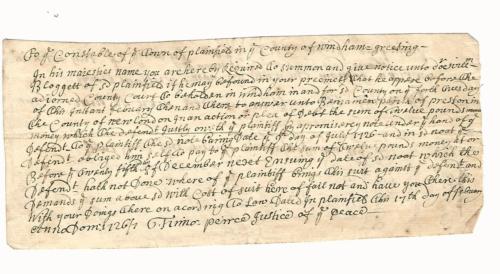 To ye Constable of ye Town of plainfield in ye County of windham greeting
In his majesties name you are hereby Required to summon and give notice unto
Blogett of sd plainfield if he may be found in your precinct that he appear before the
adjorned County Court to be holden in windham in and for sd County on ye forth tuesday
of this Instant Febuary then and there to answer unto Benjamen parke of preston in
the County of new london in an action or plea of Debt the sum of twelve pounds
money which the Defendt justly oweth ye plaintiff by a promisere note under ye hand of ye
Defendt to ye plaintiff the sd note bearing Date ye day of July 1726 and in sd noat ye
Defendt obliged him self to pay to ye plaintiff the sum of twelve pounds money at or
Before ye twenty fifth of December next Ensuing ye Date of sd noat which the
Defendt hath not Done where of ye plaintiff brings this suit against ye Defendt and
Demands ye sum above sd with Cost of suit here of fail not and have you there this
with your Doings there on acording to Law Dated in plainfield this 17th day of Febuary
anno Dom: 1726/7 Peirce Justice of ye peace